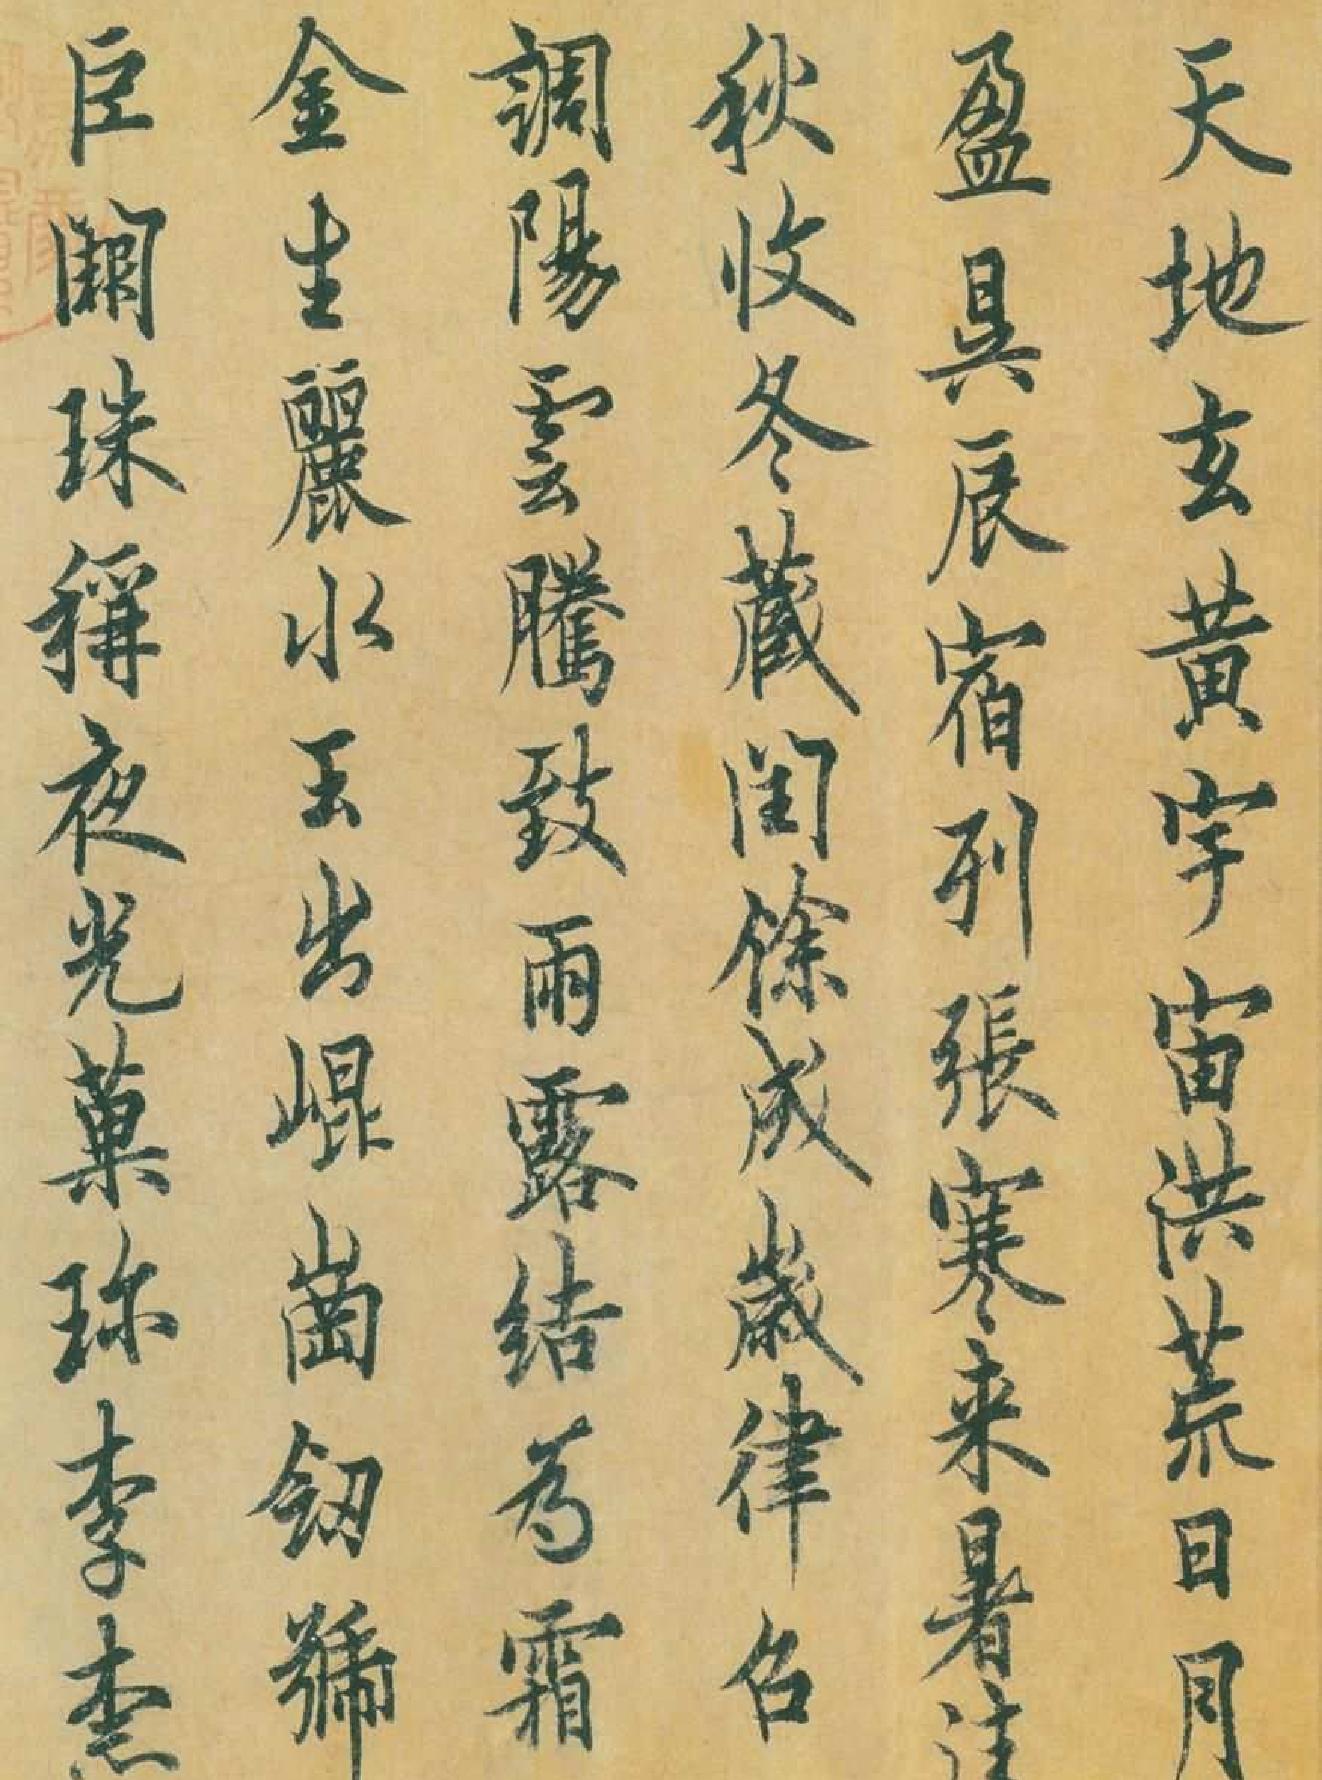 天地玄黃宇宙洪荒日月
盈昃辰宿列張寒来暑往
秋收冬藏閏餘成歲律召
調陽雲騰致雨露結為霜
金生麗水玉出崐崗劒號
巨闕珠稱夜光菓珎李柰